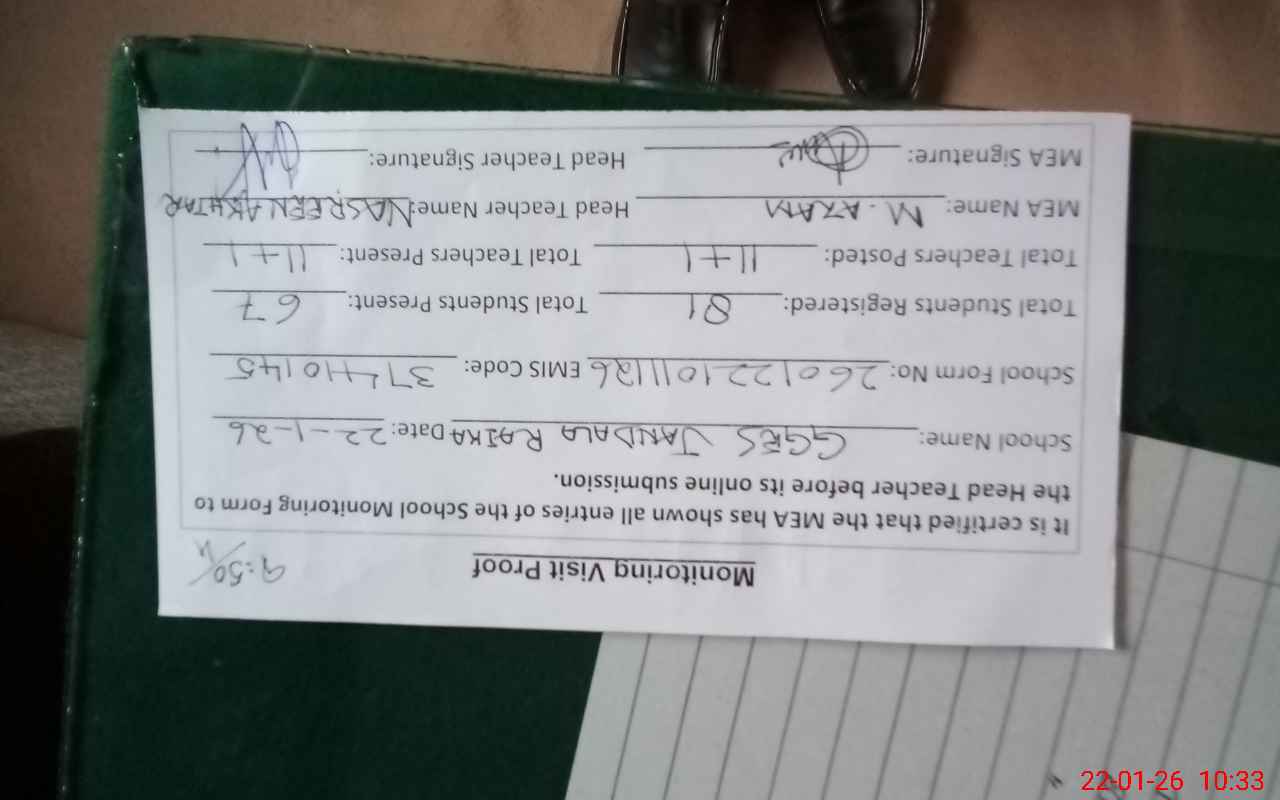 Monitoring Visit Proof 9:50/h
It is certified that the MEA has shown all entries of the School Monitoring Form to
the Head Teacher before its online submission.
School Name: GGES JANDALA RAIKA Date: 22-1-26
School Form No: 260122101126 EMIS Code: 37410145
Total Students Registered: 81 Total Students Present: 67
Total Teachers Posted: 11+1 Total Teachers Present: 11+1
MEA Name: M. AZAM Head Teacher Name: NASREEN AKHTAR
MEA Signature: Head Teacher Signature:
22-01-26 10:33